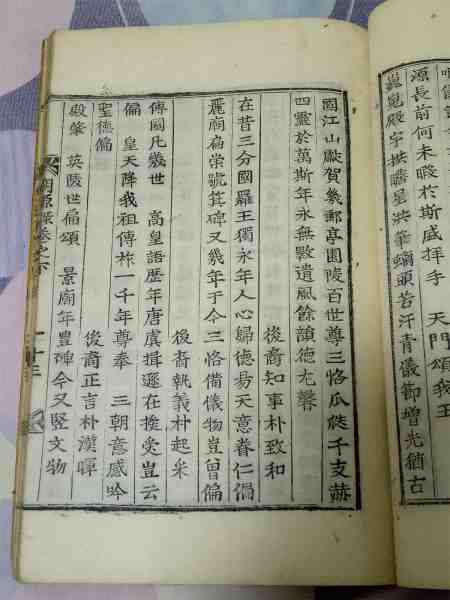 源長前何未暇於斯盛拜手 天門頌我王
殿宇拱曉星 筆 頭若汗青儀節增光猶古
國江山獻賀幾郵亭園陵百世尊三恪瓜瓞千支赫
四靈於萬斯年永無斁遺風餘韻德尤馨
後裔知事朴致和
在昔三分國羅王獨永年人心歸德昜天意眷仁偈
麗廟扁崇號箕碑又幾年于今三恪備儀物豈曾偏
後裔執義朴起采
傳國凡幾世 高皇語歷年唐虞揖遜在揆受豈云
偏 皇天降我祖傳祚一千年尊奉 三朝意感吟
聖德偏 後裔正言朴漢暉
殿肇 英陵世扁頌 景廟年豊碑今又竪文物
源錄卷之下